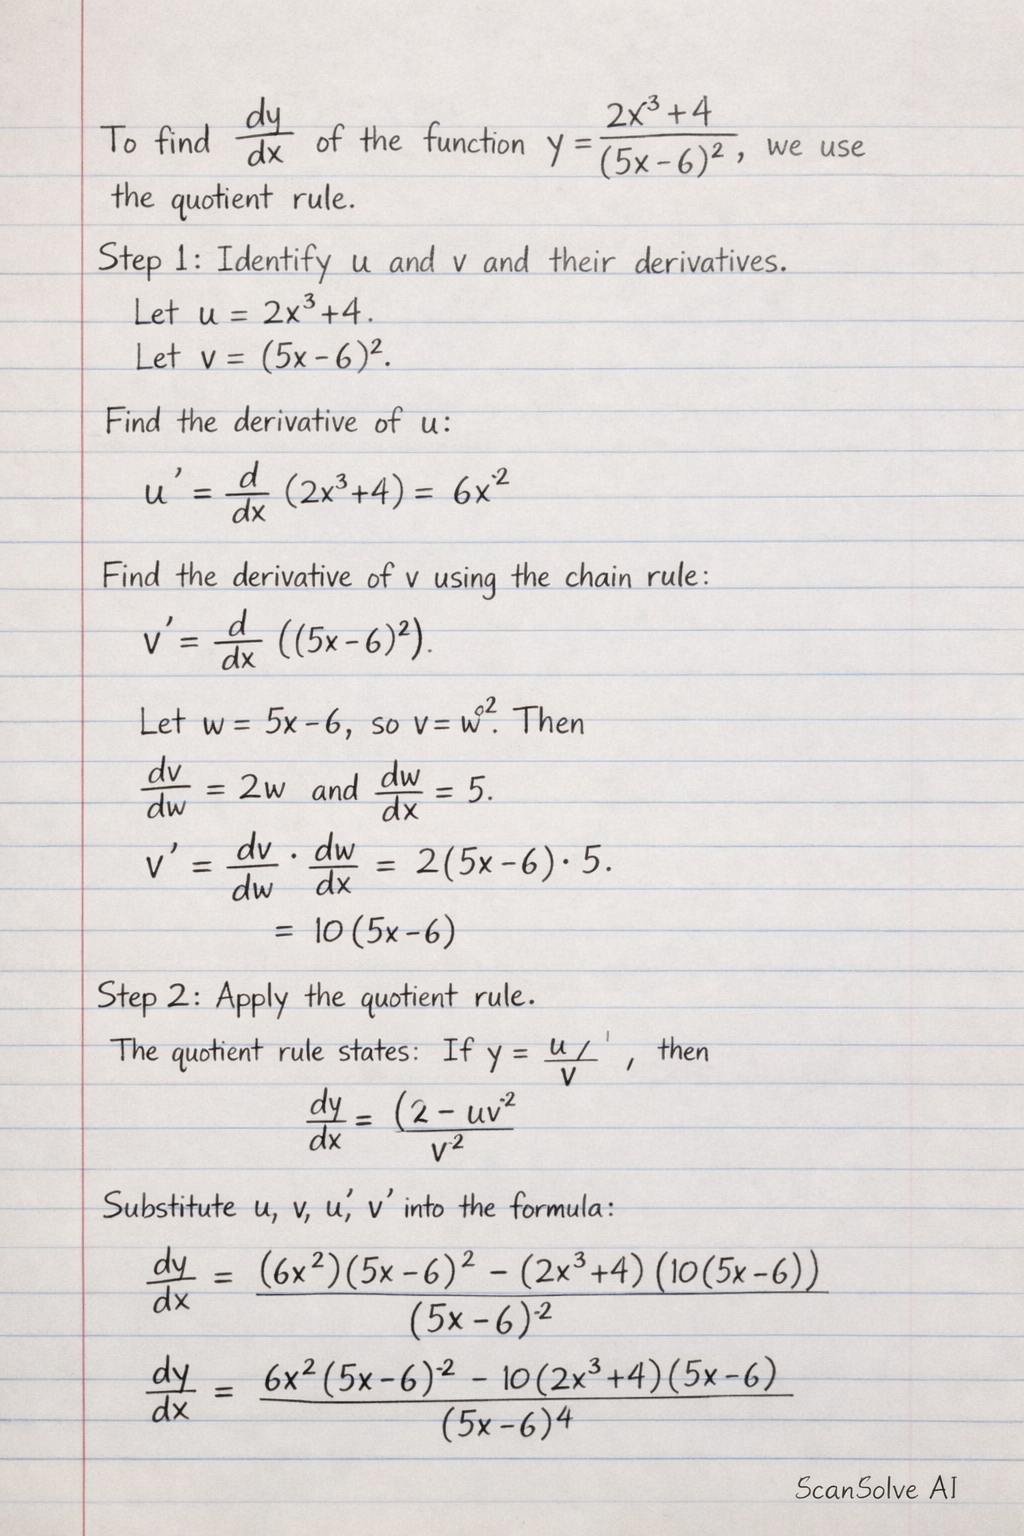 To find dy/dx of the function y = (2x³+4)/(5x-6)², we use
the quotient rule.
Step 1: Identify u and v and their derivatives.
Let u = 2x³+4.
Let v = (5x-6)².
Find the derivative of u:
u' = d/dx (2x³+4) = 6x⁻²
Find the derivative of v using the chain rule:
v' = d/dx ((5x-6)²).
Let w = 5x-6, so v = w°². Then
dv/dw = 2w and dw/dx = 5.
v' = dv/dw · dw/dx = 2(5x-6)·5.
= 10(5x-6)
Step 2: Apply the quotient rule.
The quotient rule states: If y = u/v, then
dy/dx = (2 - uv⁻²/v⁻²
Substitute u, v, u', v' into the formula:
dy/dx = (6x²)(5x-6)² - (2x³+4)(10(5x-6))/(5x-6)⁻²
dy/dx = 6x²(5x-6)⁻² - 10(2x³+4)(5x-6)/(5x-6)⁴
ScanSolve AI